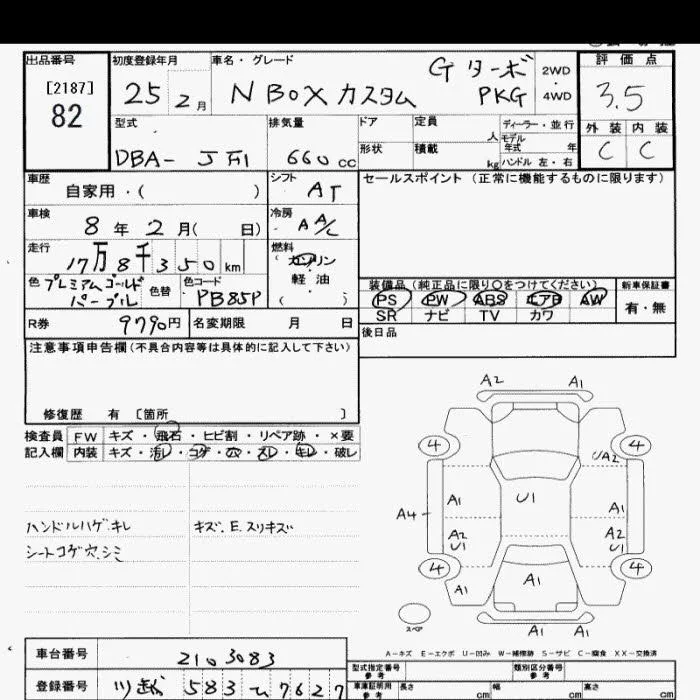 出品番号
[2187]
82
初度登録年月
25 2月
車名・グレード
N BOX カスタム
G ターボ
PKG
2WD
4WD
評価点
3.5
外装 内装
C C
型式
DBA- JF1
排気量
660cc
ドア
形状
定員 人
積載 kg
ディーラー・並行
モデル
年式 年
ハンドル 左・右
車歴
自家用・( )
シフト
AT
セールスポイント (正常に機能するものに限ります)
車検
8年 2月( 日)
冷房
A A/C
走行
17万8千350km
燃料
(ガソリン
軽油
( )
色
プレミアムゴールド
パープル
色替
色コード
PB85P
装備品(純正品に限り○をつけてください)
PS PW ABS エアB AW
SR ナビ TV カワ
新車保証書
有・無
R券
9790円
名変期限 月 日
後日品
注意事項申告欄(不具合内容等は具体的に記入して下さい)
修復歴 有 〔箇所 〕
検査員
記入欄
FW キズ・飛石・ヒビ割・リペア跡・×要
内装 キズ・汚レ・コゲ・穴・スレ・キレ・破レ
ハンドルハゲ.キレ
シートコゲ穴.シミ
キズ、E.スリキズ
A2 A1
4 4
A2
A1 U1 A1
A4
A2 A2
U1 U1
4 4
A1 A1
スペア
A1
A-キズ E-エクボ U-凹み W-補修跡 S-サビ C-腐食 XX-交換済
車台番号
2103083
型式指定番号
参考
類別区分番号
参考
登録番号
川越 583 ひ 7627
車庫証明用
参考
長さ cm
幅 cm
高さ cm